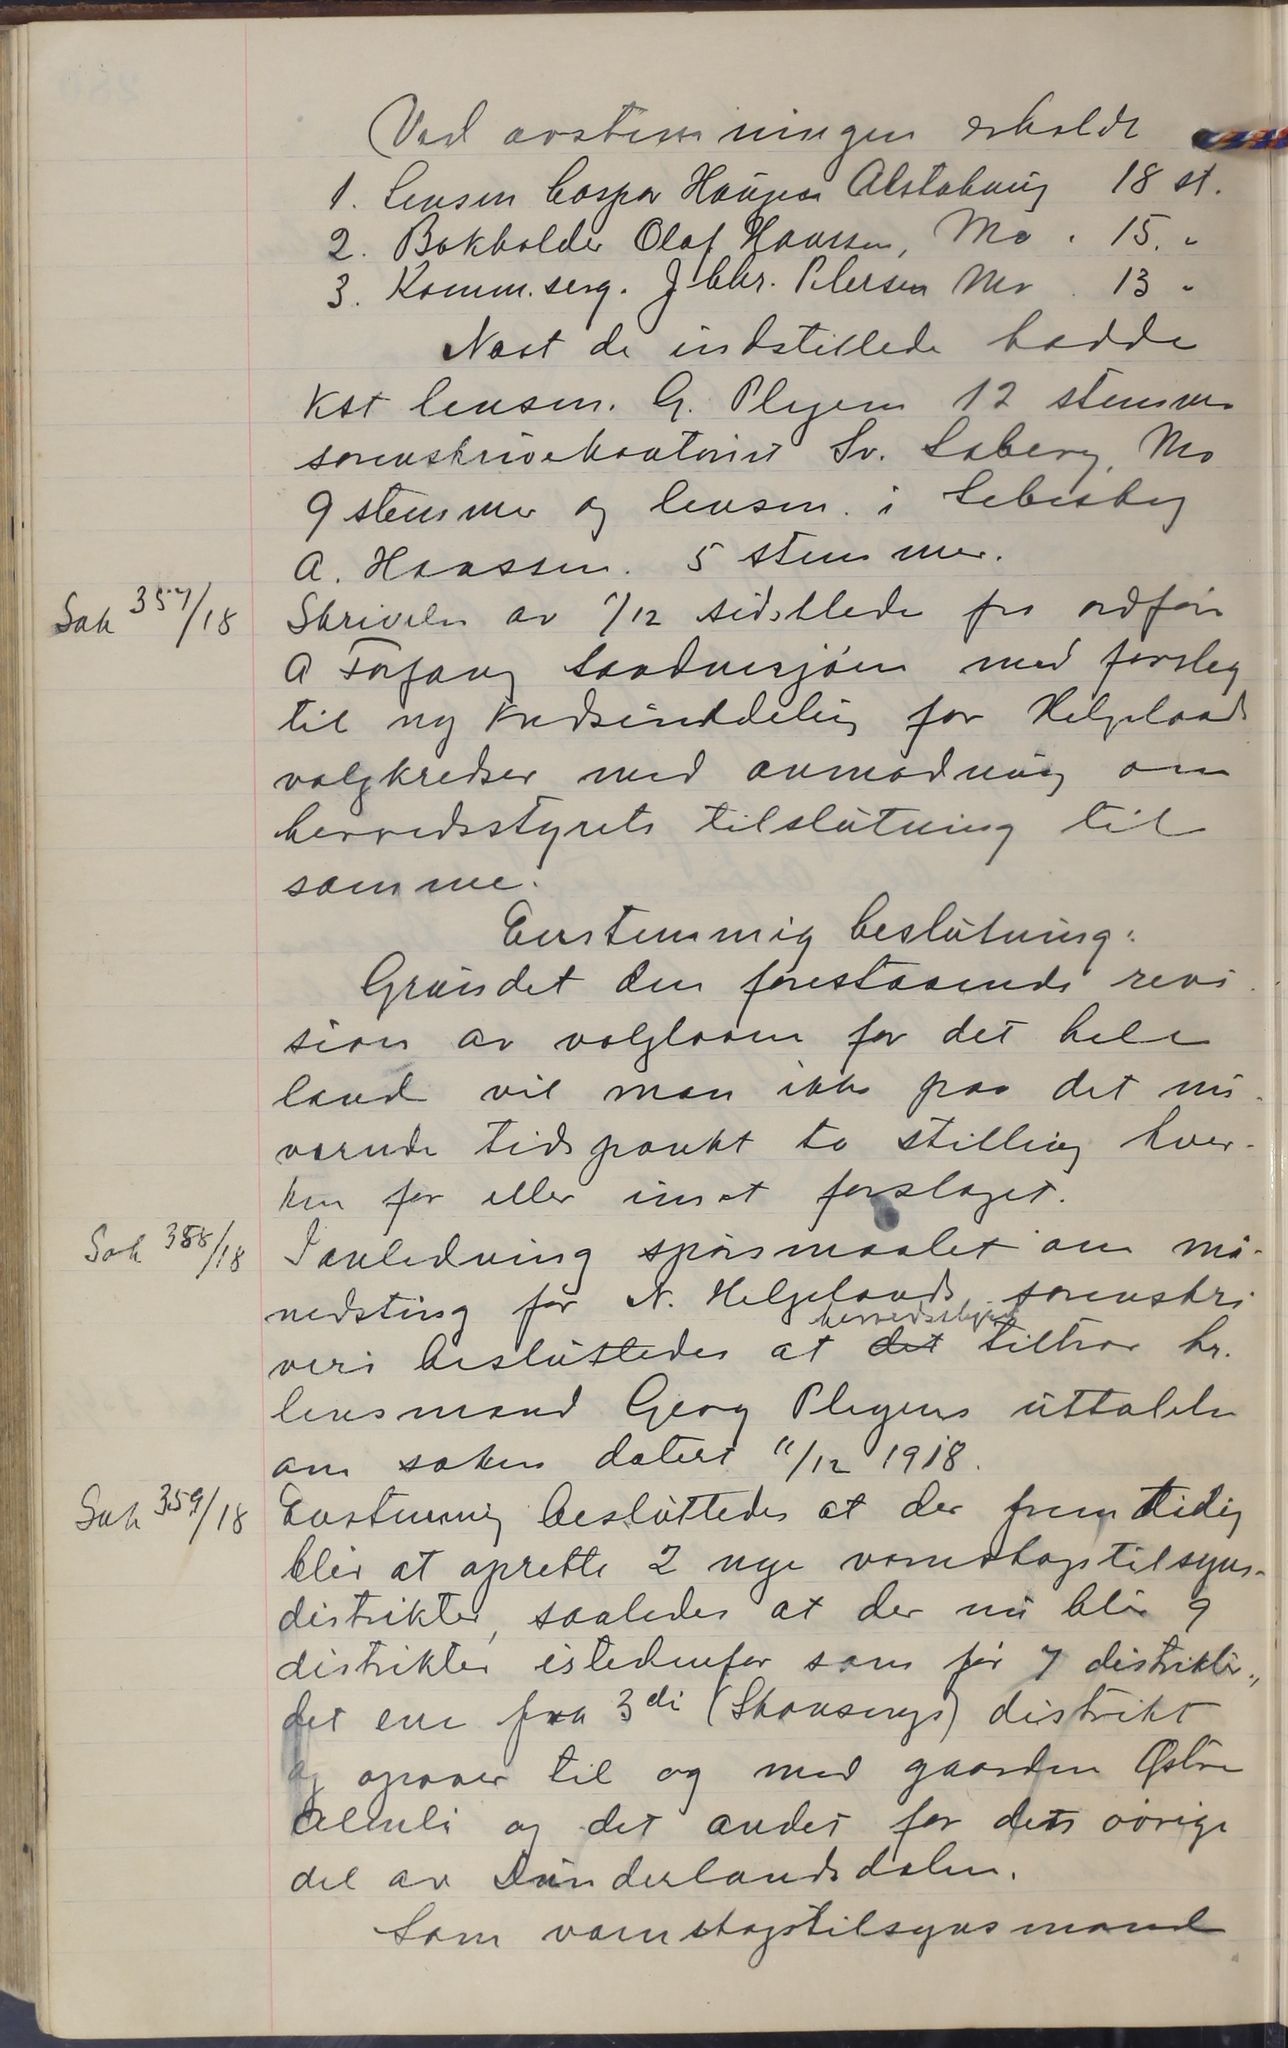 Ved avstemningen erholdt
1. Lensm Caspar Haugen Alstahaug 18 st.
2. Bokholder Olaf Hanssen, Mo . 15. "
3. Komm. serg. J Chr. Petersen Mo . 13 "
Næst de indstillede hadde
Kst lensm. G. Plygen 12 stemmer
sorenskriverkontorist Sv. Saberg, Mo
9 stemmer og lensm. i Lebesby
A. Hanssen. 5 stemmer.
Sak 357/18 Skrivelse av /12 sidstlede fra ordfør
A Forfang Sandnesjøen med forslag
til ny kredsinddeling for Helgelands
valgkredser med anmodning om
herredsstyrets tilslutning til
samme.
Enstemmig beslutning:
Grundet den forestaaende revi-
sion av valgloven for det hele
land vil man ikke paa det nu-
værende tidspunkt ta stilling hver-
ken for eller imot forslaget.
Sak 358/18 I anledning spørsmaalet om maa-
nedsting for N. Helgelands sorenskri
veri besluttedes at det herredsstyret tiltrær hr.
lensmand Georg Plygens uttalelse
om saken datert 11/12 1918.
Sak 359/18 Enstemmig besluttedes at der fremtidig
blir at oprette 2 nye vanskogstilsyns-
distrikter, saaledes at der nu blir 9
distrikter istedenfor som før 7 distrikter,
det ene fra 3di (Skonsengs) distrikt
og opover til og med gaarden Østre
Almli og det andet for dets øvrige
del av Dunderlandsdalen.
Som vanskogstilsynsmand